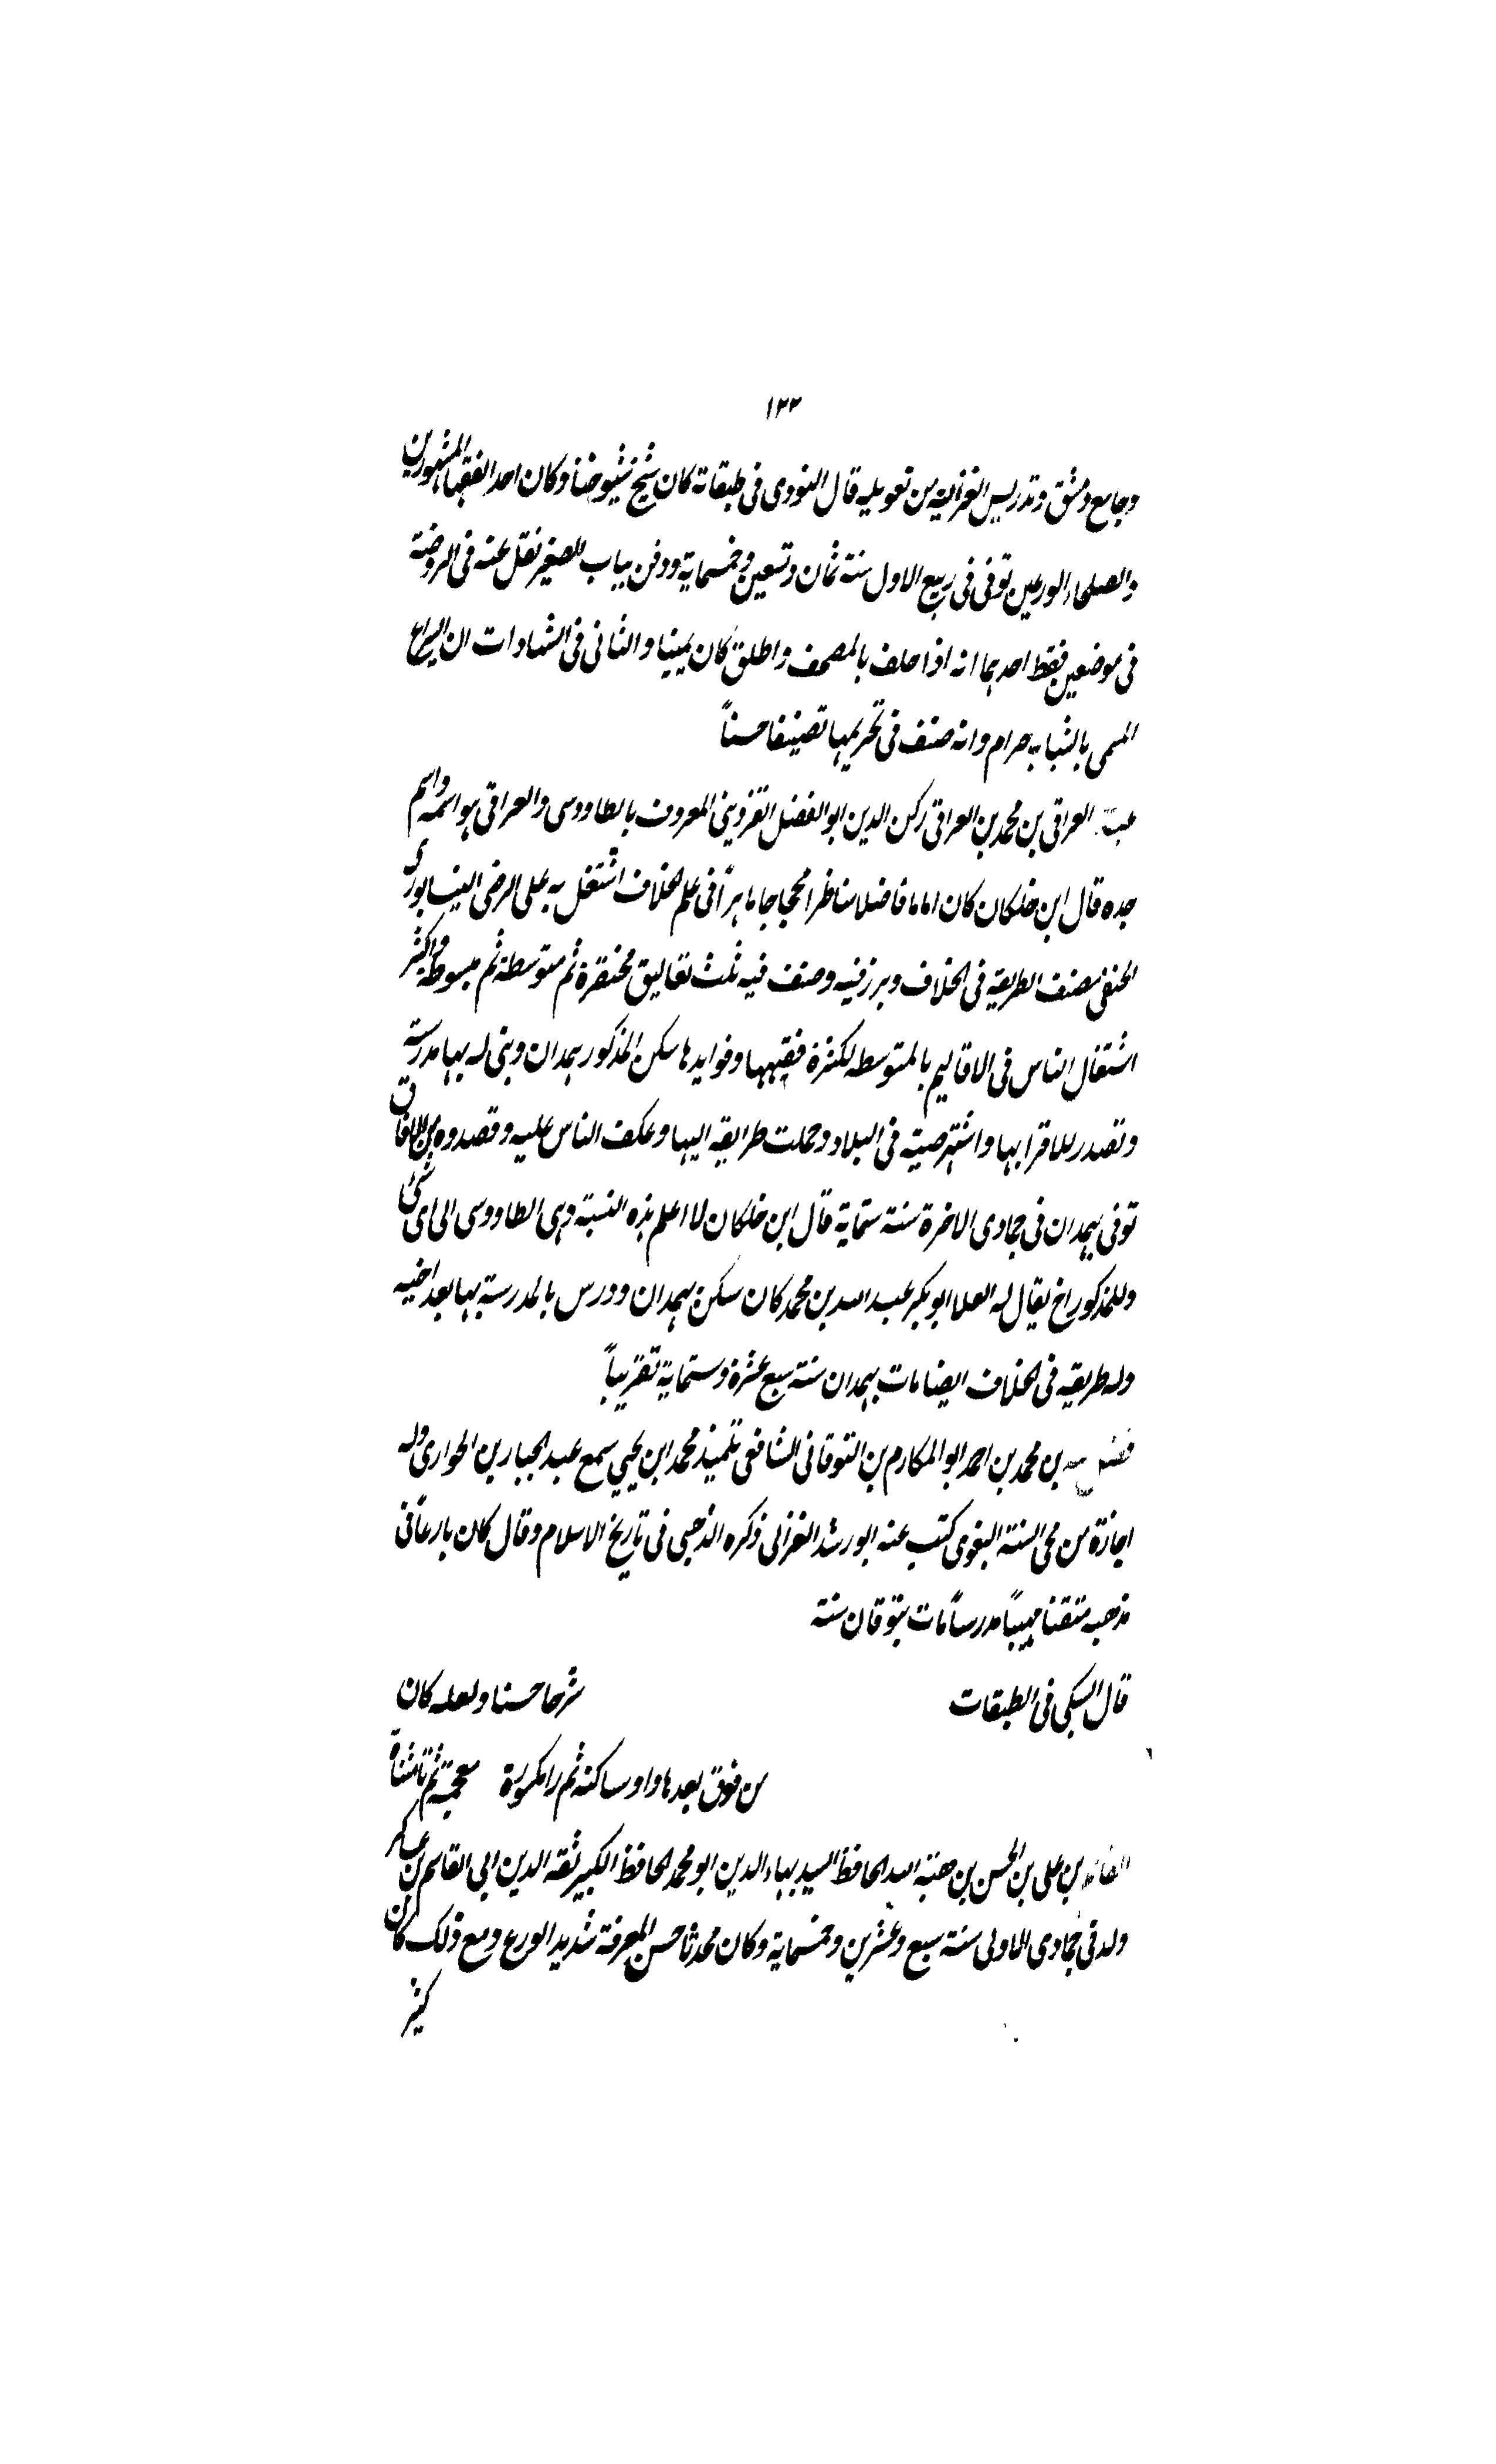 ۱۲۲
وجامع دمشق وتدريس الغزالية من تعويله قال النووى فى طبقاته كان شيخ شيوخنا وكان احد الفقهاء المشهورين
والصلحاء الورعين توفى فى ربيع الاول سنة ثمان وتسعين وخمسماية ودفن بباب الصغير نقل عنه فى الروضة
فى موضعين فقط احدهما انه اذا حلف بالمصحف واطلق كان يمينا والثانى فى الشهادات ان اليراع
المسمى بالشبابه حرام وانه صنف فى تحريمها تصنيفا حسناً
العراقى بن محمد بن العراقى ركن الدين ابو الفضل القزوينى المعروف بالطاووسى والعراقى هو اسمه واسم
جده قال ابن خلكان كان اماما فاضلا مناظرا محجاجا ماهراً فى علم الخلاف اشتغل به على الرضى النيسابورى
الحنفى مصنف الطريقه فى الخلاف وبرز فيه وصنف فيه ثلث تعاليق مختصرة ثم متوسطة ثم مبسوطة واكثر
اشتغال الناس فى الاقاليم بالمتوسطه لكثرة فقهها وفوايدها سكن المذكور بهمدان وبنى له بها مدرسة
وتصدر للاقرا بها واشتهر صيته فى البلاد وحملت طرايقه اليها وعكف الناس عليه وقصدوه من الافاق
توفى بهمدان فى جمادى الاخرة سنة ستماية قال ابن خلكان لا اعلم هذه النسبة وهى الطاووسى الى اى شئ
وللمذكور اخ يقال له العلا ابو بكر عبد الله بن محمد كان سكن بهمدان ودرس بالمدرسة بها بعد اخيه
وله طريقه فى الخلاف ايضا مات بهمدان سنة سبع عشرة وستماية تقريباً
بن محمد بن احمد ابو المكارم بن النوقانى الشافعى تلميذ محمد ابن يحيى سمع عبد الجبار بن الخوارى وله
اجازة من محى السنة البغوى كتب عنه ابو رشد الغزالى ذكره الذهبى فى تاريخ الاسلام وقال كان بارعاً فى
مذهبه متقنا مهيباً مدرساً مات بنوقان سنة
قال السبكى فى الطبقات شرحا حسنا ولعله كان
من فوق بعدها واو ساكنه ثم را مكسورة معجمة ثم تا مثناة
بن على بن الحسن بن هبة الله الحافظ السيد بهاء الدين ابو محمد الحافظ الكبير ثقه الدين ابى القاسم بن عساكر
ولد فى جمادى الاولى سنة سبع وعشرين وخمسماية وكان محدثا حسن المعرفة شديد الورع ومع ذلك كان
كثير